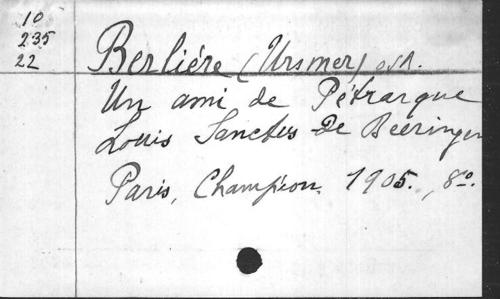 10
235
22
Berlière (Ursmer) osb.
Un ami de Pétrarque
Louis Sanctus de Beeringen
Paris, Champion. 1905., 8º.